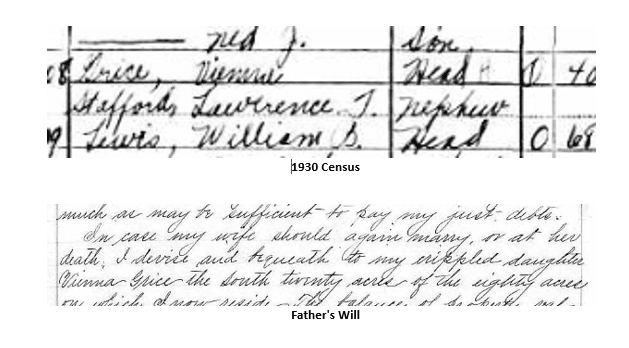 Ned J. Son
Grice, Vienna Head 0 40
Stafford, Lawrence T. Nephew
Lewis, William S. Head 0 68
1930 Census
much as may be sufficient to pay my just debts.
In case my wife should again marry, or at her
death, I devise and bequeath to my crippled daughter
Vienna Grice the south twenty acres of the eighty acres
on which I now reside - The balance of property
Father's Will